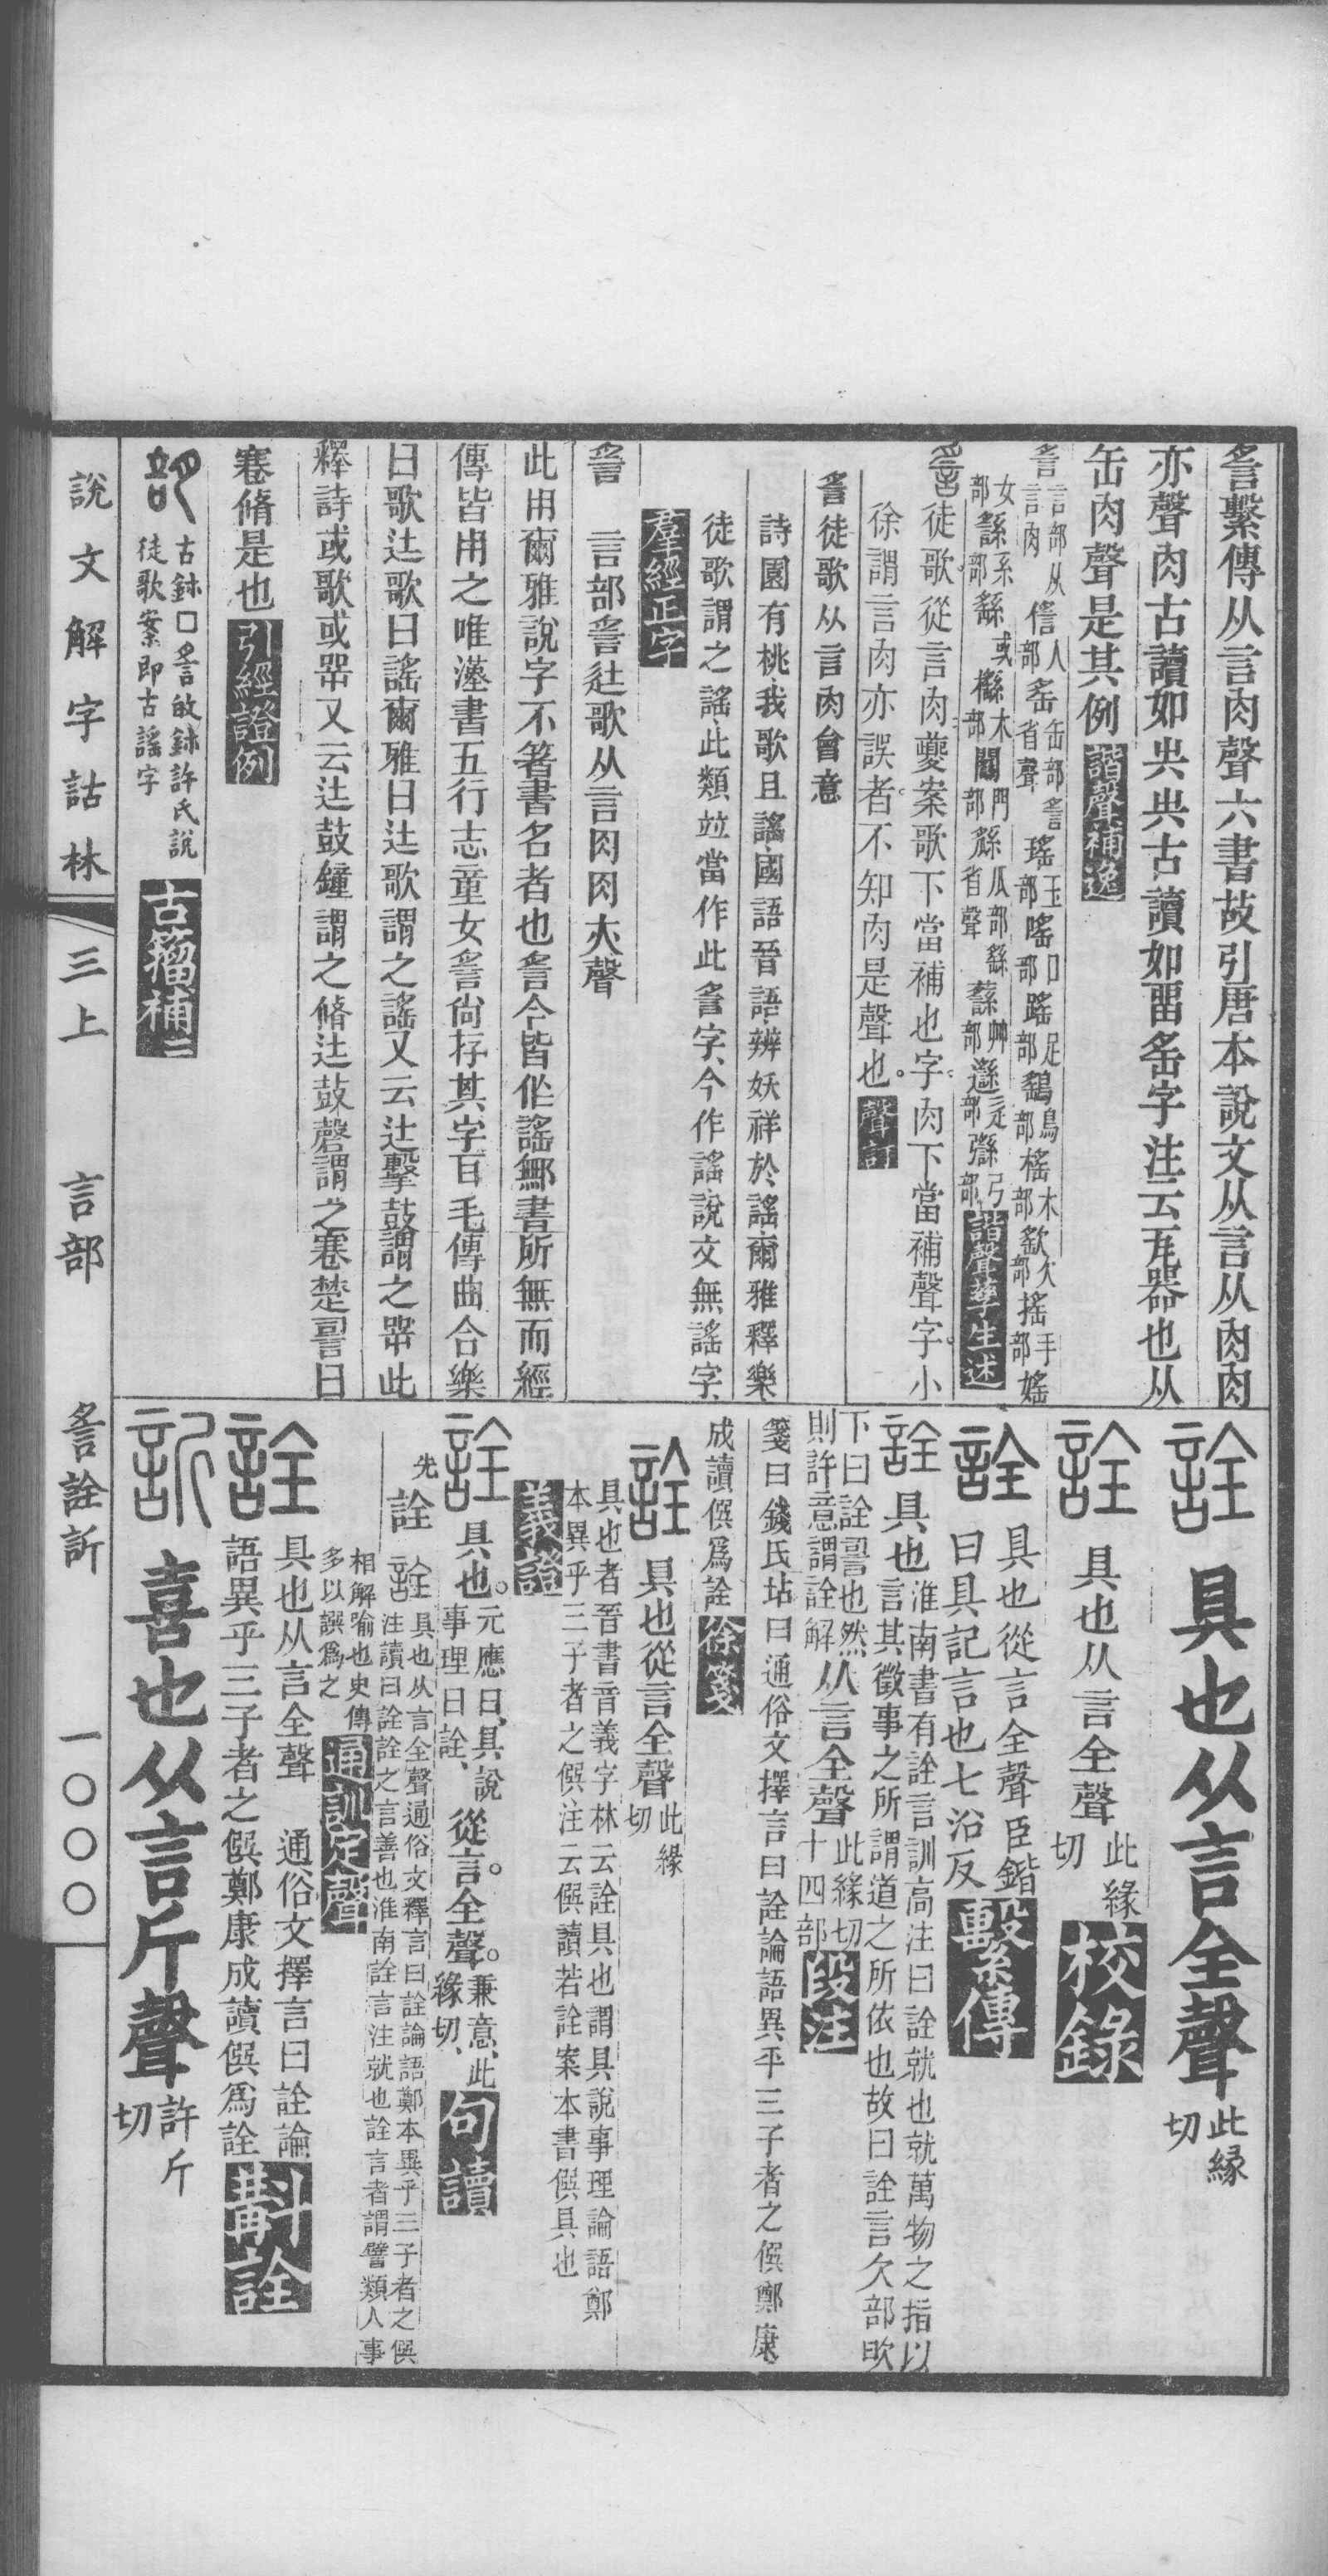 䚻繫傳从言肉聲六書故引唐本說文从言从肉肉
亦聲肉古讀如𡗜𡗜古讀如畱䍃字注云瓦器也从
缶肉聲是其例 諧聲補逸
䚻 言部从言肉 㒡人部 䍃缶部䚻省聲 瑤玉部 嗂口部 蹈足部 鷂鳥部 榣木部 歚欠部 搖手部 媱
女部 繇系部 繇或 櫾木部 𨷱門部 䌛瓜部繇省聲 蘨艸部 邎辵部 䌛弓部 諧聲孳生述
䚻徒歌從言肉夔案歌下當補也字肉下當補聲字小
徐謂言肉亦誤者不知肉是聲也 聲訂
䚻徒歌从言肉會意
詩園有桃我歌且謠國語晉語辨妖祥於謠爾雅釋樂
徒歌謂之謠此類竝當作此䚻字今作謠說文無謠字
羣經正字
䚻 言部䚻辻歌从言肉肉亦聲
此用爾雅說字不箸書名者也䚻今皆作謠鄦書所無而經
傳皆用之唯漢書五行志童女䚻尙存其字百毛傳曲合樂
曰歌辻歌曰謠爾雅曰辻歌謂之謠又云辻擊鼓謂之咢此
釋詩或歌或咢又云辻鼓鐘謂之脩辻鼓磬謂之寋楚䛐曰
寋脩是也 引經證例
古鉨□䚻啟鉨許氏說
徒歌案卽古謠字 古籀補二
詮 具也从言全聲 此緣切
詮 具也从言全聲 此緣切 校錄
詮 具也從言全聲臣鍇
曰具記言也七沿反 繫傳
詮 具也 淮南書有詮言訓高注曰詮就也就萬物之指以
言其徵事之所謂道之所依也故曰詮言欠部欥
下曰詮䛐也然
則許意謂詮解 从言全聲 此緣切十四部 段注
箋曰錢氏坫曰通俗文擇言曰詮論語異乎三子者之僎鄭康
成讀僎爲詮 徐箋
詮 具也從言全聲 此緣切
具也者晉書音義字林云詮具也謂具說事理論語鄭
本異乎三子者之僎注云僎讀若詮案本書僎具也
義證
詮 具也。元應曰、具說事理曰詮、從言。全聲。兼意、此緣切、 句讀
先 詮 具也从言全聲通俗文釋言曰詮論語鄭本異乎三子者之僎
注讀曰詮詮之言善也淮南詮言注就也詮言者謂譬類人事
相解喻也史傳
多以譔爲之 通訓定聲
詮 具也从言全聲 通俗文擇言曰詮論
語異乎三子者之僎鄭康成讀僎爲詮 斠詮
訢 喜也从言斤聲 許斤切
說文解字詁林 三上 言部 䚻詮訢 一〇〇〇